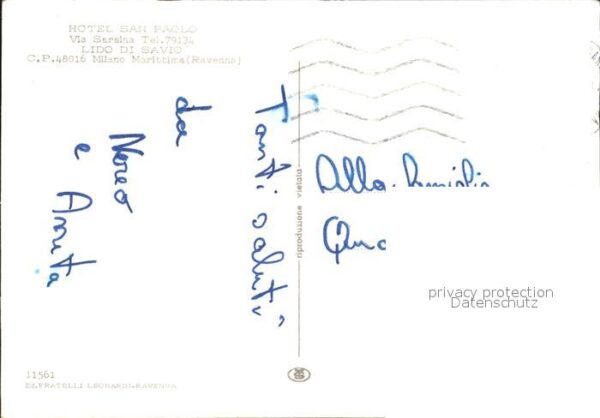 HOTEL SAN PAOLO
Via Sarsina Tel.79134
LIDO DI SAVIO
C.P.48016 Milano Marittima(Ravenna)
Tanti saluti
da
Nereo
e Annita
Alla
riproduzione vietata
privacy protection
Datenschutz
11561
D.FRATELLI LEONARDI-RAVENNA